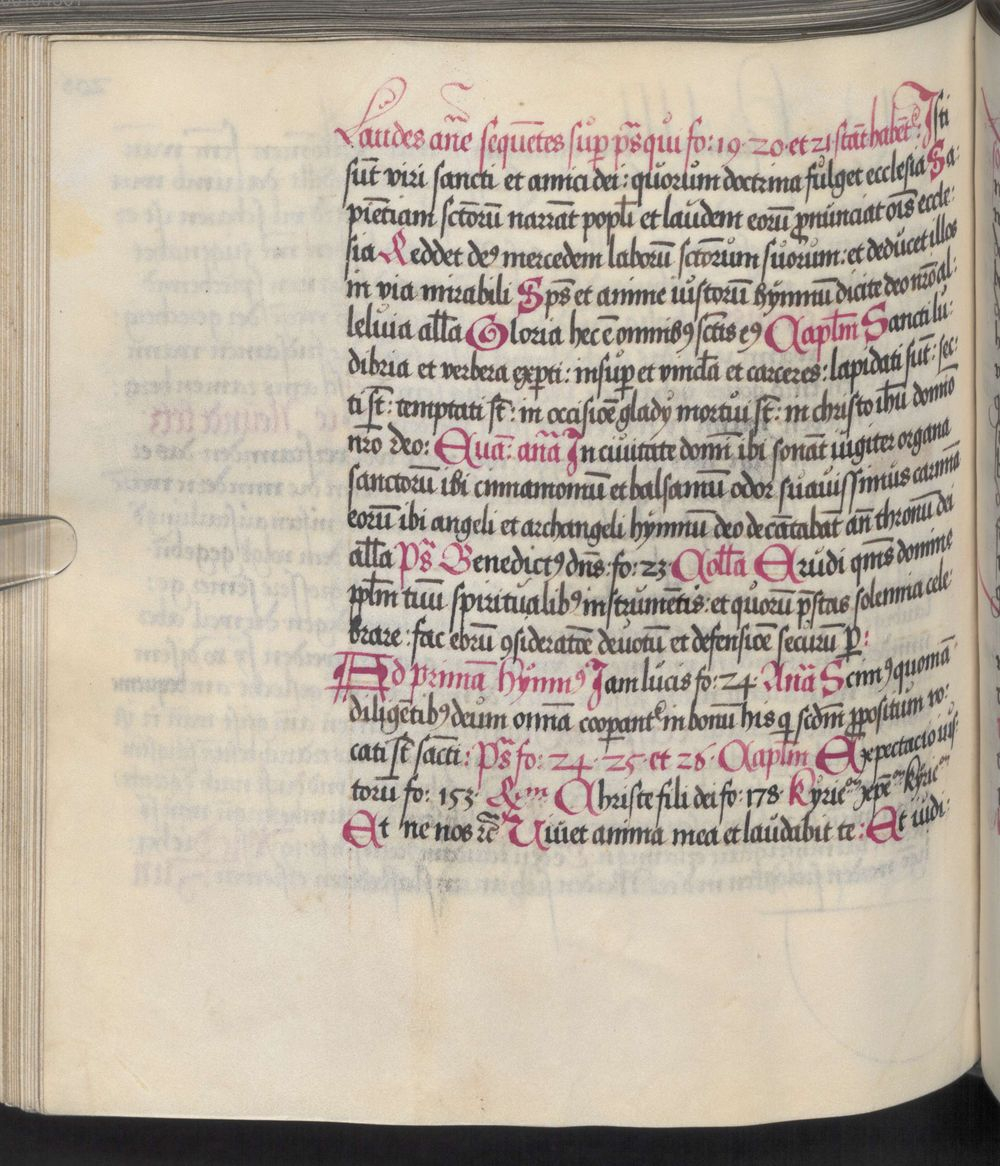 Laudes añe sequẽtes sup̱ ps̃ qui fo: 19 20 et 21 stãt habẽt: Isti
sũt viri sancti et amici dei: quorum doctrina fulget ecclesia Sa-
piẽtiam sctorũ narrãt popli et laudem eorũ ꝓnũciat oĩs eccle-
sia Reddet deꝰ mercedem laborũ sctorum suorum: et deducet illos
in via mirabili Sps̃ et anime iustorũ hymnũ dicite deo nr̃o al-
leluia alla Gloria hec ẽ omnibꝰ sctis eꝰ Caplm̃ Sancti lu-
dibria et verbera exꝑti: insuꝑ et vincla et carceres: lapidati sũt: sec-
ti st̃: temptati st̃: in occisiõe gladÿ mortui st̃: in christo ihũ domio
nr̃o deo: Euã: añã In ciuitate domĩ ibi sonãt iugiter organa
sanctorũ ibi cinnamomũ et balsamũ odor suauissimus carmĩa
eorũ ibi angeli et archangeli hymnũ deo decãtabãt añ thronũ dei
alla Ps̃ Benedictꝰ dñs: fo: 23 Colla Erudi qms domine
pplm tuũ spiritualibꝰ instrumẽtis: et quorũ p̃stas solennia cele-
brare: fac eorũ ꝯsideratiõe deuotũ et defensiõe securũ ꝑ:
Ad primã hymnꝰ Iam lucis fo: 24 Añã Scimꝰ quoniã
diligẽtibꝰ deum omĩa cooꝑant in bonũ his q̱ scd̃m ꝓpositum vo-
cati st̃ sãcti: Ps̃ fo: 24 25 et 26 Caplm̃ Expectacio iuſ-
torũ fo: 153 Rm Christe fili dei fo: 178 Kyrie xpe Kyrie
Et ne nos re Viuet anima mea et laudabit te: Et iudi-